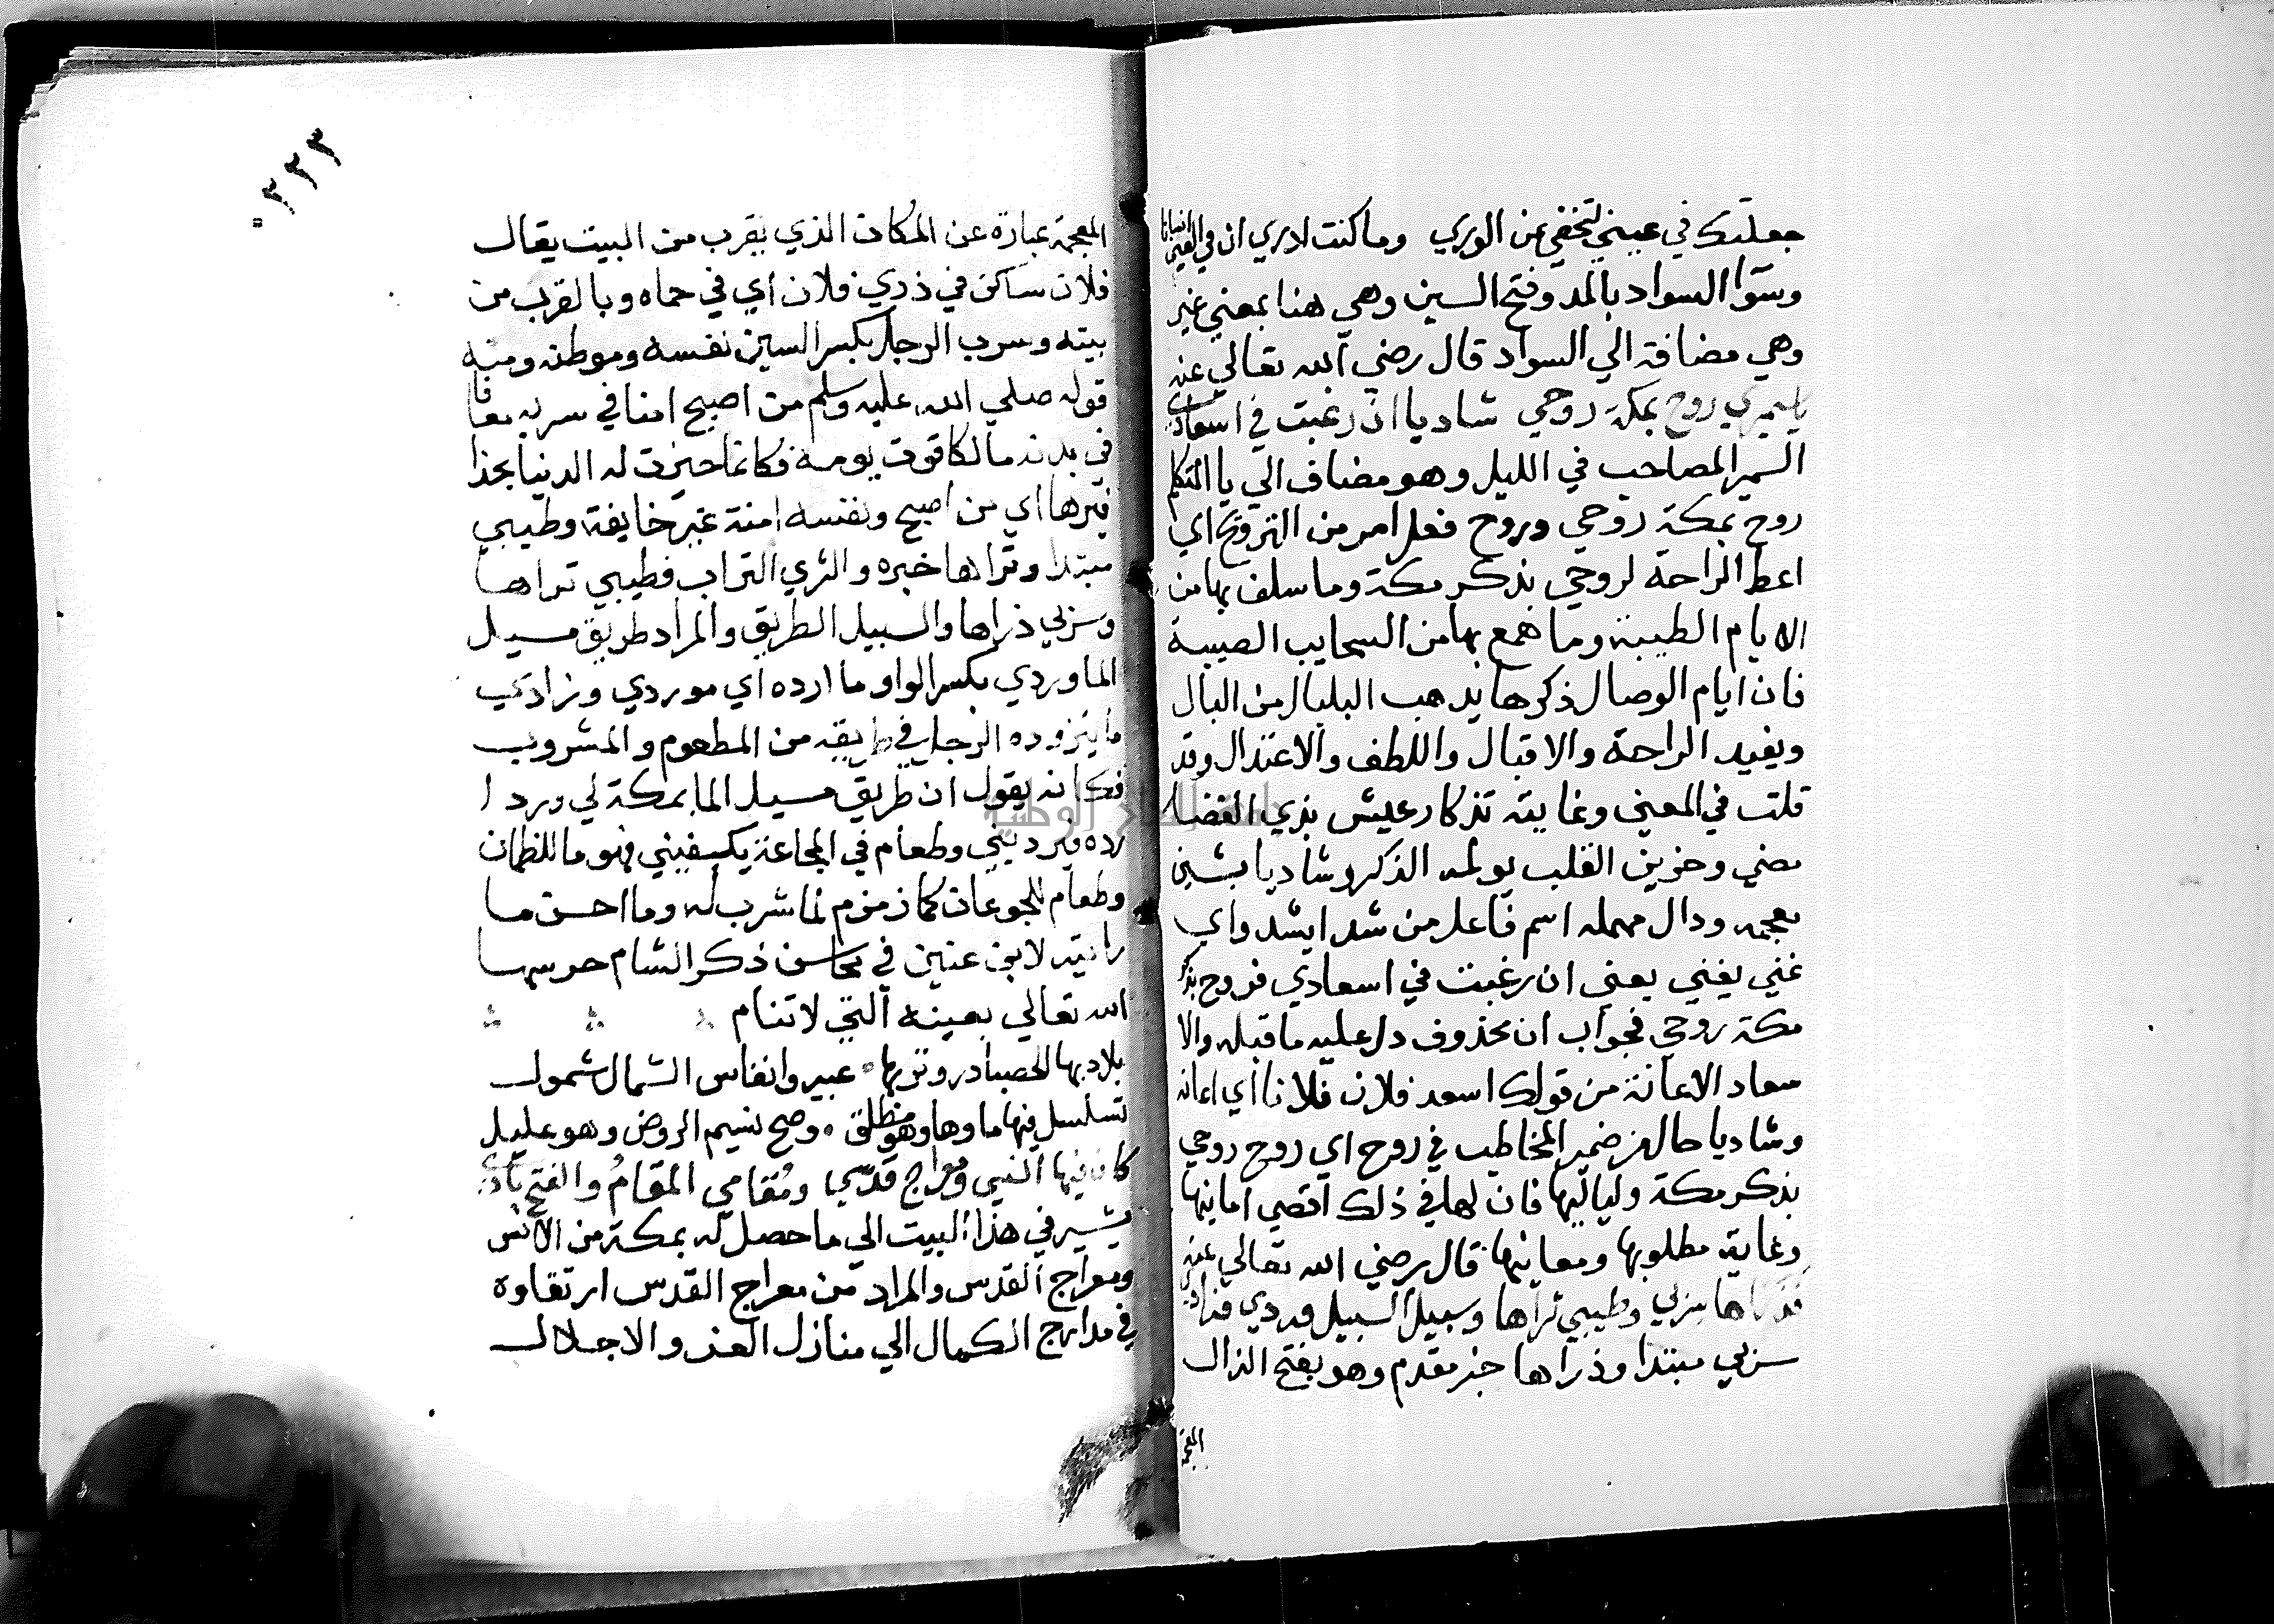 جعلتك في عيني لتخفي عن الوري وما كنت ادري ان في العين انسانا
وسوا السواد بالمد وفتح السين وهي هنا بمعني غير
وهي مضافة الي السواد قال رضي الله تعالي عنه
يا سميري روح بمكة روحي شاديا ان رغبت في اسعادي
السمير المصاحب في الليل وهو مضاف الي يا المتكلم
روح بمكة روحي وروح فعل امر من الترويح اي
اعط الراحة لروحي بذكر مكة وما سلف بها من
الايام الطيبة وما همع بها من السحايب الصيبة
فان ايام الوصال ذكرها يذهب البلبال من البال
ويفيد الراحة والاقبال واللطف والاعتدال وقد
قلت في المعني وغايته تذكار عيش بذي الغضا
مضي وحزين القلب يولمه الذكر وشاديا بشين
معجمه ودال مهمله اسم فاعل من شدا يشدو اي
غني يغني يعني ان رغبت في اسعادي فروح بذكر
مكة روحي فجواب ان محذوف دل عليه ما قبله والا
سعاد الاعانة من قولك اسعد فلان فلانا اي اعانه
وشاديا حال من ضمير المخاطب في روح اي روح روحي
بذكر مكة ولياليها فان لها في ذلك اقصي امانيها
وغاية مطلوبها ومعانيها قال رضي الله تعالي عنه
فذراها سربي وطيبي ثراها وسبيل السبيل وردي وزادي
سربي مبتدا وذراها خبر مقدم وهو بفتح الذال
المعجمة
٢٢٣
المعجمة عبارة عن المكان الذي يقرب من البيت يقال
فلان ساكن في ذري فلان اي في حماه وبالقرب من
بيته وسرب الرجل بكسر السين نفسه وموطنه ومنه
قوله صلي الله عليه وسلم من اصبح امنا في سربه معافا
في بدنه مالكا قوت يومه فكانما حيزت له الدنيا بحذا
فيرها اي من اصبح ونفسه امنة غير خايفة وطيبي
مبتدا وثراها خبره والثري التراب فطيبي تراها
وسربي ذراها والسبيل الطريق والمراد طريق مسيل
الما وردي بكسر الواو ما ارده اي موردي وزادي
ما يتزوده الرجل في طريقه من المطعوم والمشروب
فكانه يقول ان طريق مسيل الما بمكة لي ورد ا
رده فيرويني وطعام في المجاعة يكيفيني فهو ما للظمان
وطعام للجوعان كما زمزم لما شرب له وما احسن ما
رايته لابن عنين في محاسن ذكر الشام حرسها
الله تعالي بعينه التي لا تنام
بلاد بها الحصبا در وتربها عبير وانفاس الشمال شمول
تسلسل فيها ماوها وهو مطلق وصح نسيم الروض وهو عليل
كان فيها انسي ومعراج قدسي ومقامي المقام والفتح بادي
يشير في هذا البيت الي ما حصل له بمكة من الانس
ومعراج القدس والمراد من معراج القدس ارتقاوه
في مدارج الكمال الي منازل العز والاجلال